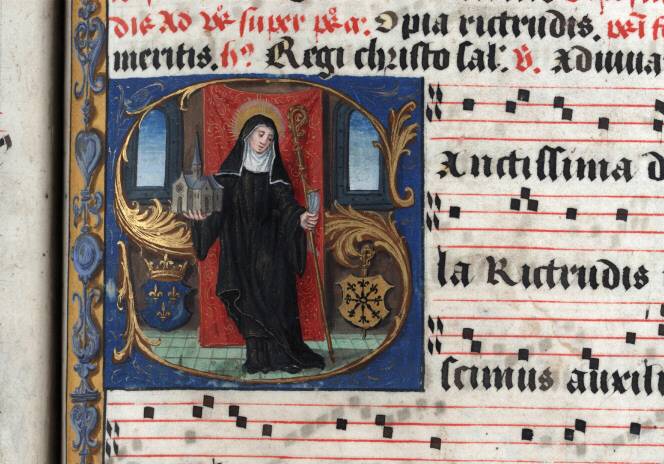 die Ad vẻ super pẻ a. O pia rictrudis.
meritis. hỹ Regi christo sal'. v. Adiuua
Sanctissima d
la Rictrudis
scimus auxili